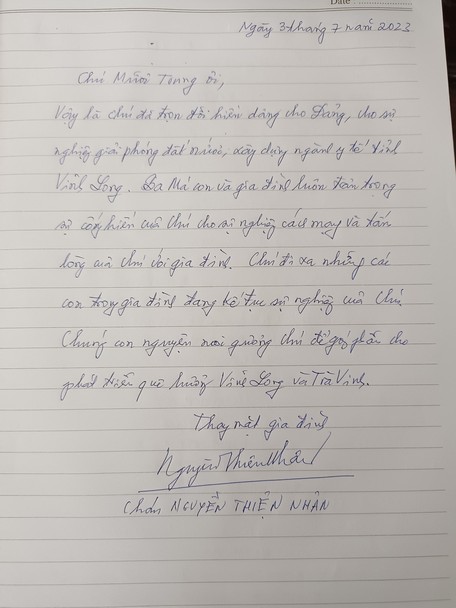 Date
Ngày 3 tháng 7 năm 2023
Chú Mười Tung ơi,
Vậy là chú đã trọn đời hiến dâng cho Đảng, cho sự
nghiệp giải phóng đất nước, xây dựng ngành y tế tỉnh
Vĩnh Long. Ba Má con và gia đình luôn trân trọng
sự cống hiến của Chú cho sự nghiệp cách mạng và tấm
lòng của chú với gia đình. Chú đi xa nhưng các
con trong gia đình đang kế tục sự nghiệp của Chú.
Chúng con nguyện noi gương Chú để góp phần cho
phát triển quê hương Vĩnh Long và Trà Vinh.
Thay mặt gia đình
Nguyễn Thiện Nhân
Cháu NGUYỄN THIỆN NHÂN